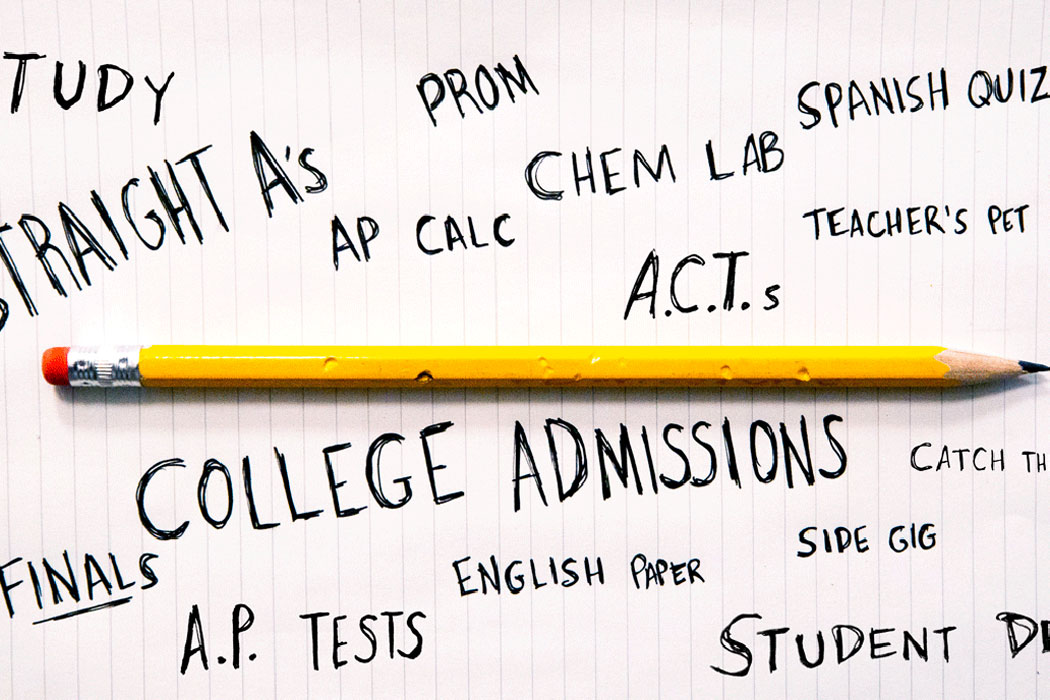 TUDY
PROM
SPANISH QUIZ
STRAIGHT A's
CHEM LAB
AP CALC
TEACHER'S PET
A.C.T.s
COLLEGE ADMISSIONS
CATCH TH
SIDE GIG
FINALS
ENGLISH PAPER
A.P. TESTS
STUDENT